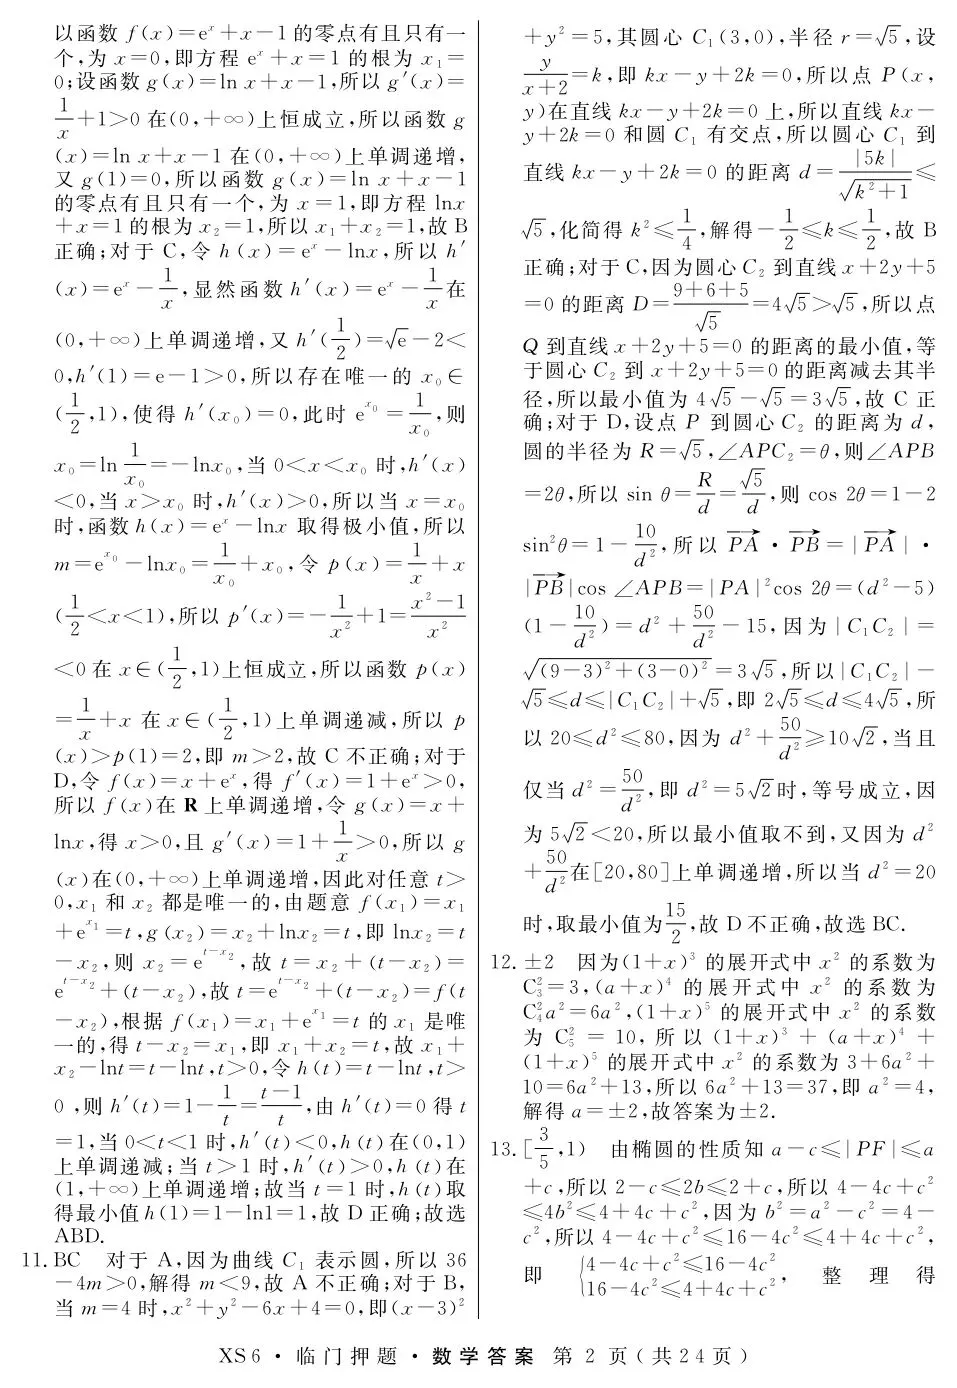 以函数 f(x)=eˣ+x-1 的零点有且只有一
个,为 x=0,即方程 eˣ+x=1 的根为 x₁=
0;设函数 g(x)=ln x+x-1,所以 g′(x)=
1/x+1>0 在(0,+∞)上恒成立,所以函数 g
(x)=ln x+x-1 在(0,+∞)上单调递增,
又 g(1)=0,所以函数 g(x)=ln x+x-1
的零点有且只有一个,为 x=1,即方程 lnx
+x=1的根为 x₂=1,所以 x₁+x₂=1,故 B
正确;对于 C,令 h(x)=eˣ-lnx,所以 h′
(x)=eˣ-1/x,显然函数 h′(x)=eˣ-1/x在
(0,+∞)上单调递增,又 h′(1/2)=√e-2<
0,h′(1)=e-1>0,所以存在唯一的 x₀∈
(1/2,1),使得 h′(x₀)=0,此时 e^x₀=1/x₀,则
x₀=ln 1/x₀=-lnx₀,当 0<x<x₀ 时,h′(x)
<0,当 x>x₀ 时,h′(x)>0,所以当 x=x₀
时,函数 h(x)=eˣ-lnx 取得极小值,所以
m=e^x₀-lnx₀=1/x₀+x₀,令 p(x)=1/x+x
(1/2<x<1),所以 p′(x)=-1/x²+1=(x²-1)/x²
<0 在 x∈(1/2,1)上恒成立,所以函数 p(x)
=1/x+x 在 x∈(1/2,1)上单调递减,所以 p
(x)>p(1)=2,即 m>2,故 C 不正确;对于
D,令 f(x)=x+eˣ,得 f′(x)=1+eˣ>0,
所以 f(x)在 R 上单调递增,令 g(x)=x+
lnx,得 x>0,且 g′(x)=1+1/x>0,所以 g
(x)在(0,+∞)上单调递增,因此对任意 t>
0,x₁ 和 x₂ 都是唯一的,由题意 f(x₁)=x₁
+e^x₁=t,g(x₂)=x₂+lnx₂=t,即 lnx₂=t
-x₂,则 x₂=e^(t-x₂),故 t=x₂+(t-x₂)=
e^(t-x₂)+(t-x₂),故 t=e^(t-x₂)+(t-x₂)=f(t
-x₂),根据 f(x₁)=x₁+e^x₁=t 的 x₁ 是唯
一的,得 t-x₂=x₁,即 x₁+x₂=t,故 x₁+
x₂-lnt=t-lnt,t>0,令 h(t)=t-lnt,t>
0,则 h′(t)=1-1/t=(t-1)/t,由 h′(t)=0 得 t
=1,当 0<t<1 时,h′(t)<0,h(t)在(0,1)
上单调递减;当 t>1 时,h′(t)>0,h(t)在
(1,+∞)上单调递增;故当 t=1 时,h(t)取
得最小值 h(1)=1-ln1=1,故 D 正确;故选
ABD.
11.BC 对于 A,因为曲线 C₁ 表示圆,所以 36
-4m>0,解得 m<9,故 A 不正确;对于 B,
当 m=4 时,x²+y²-6x+4=0,即(x-3)²
+y²=5,其圆心 C₁(3,0),半径 r=√5,设
y/(x+2)=k,即 kx-y+2k=0,所以点 P(x,
y)在直线 kx-y+2k=0 上,所以直线 kx-
y+2k=0 和圆 C₁ 有交点,所以圆心 C₁ 到
直线 kx-y+2k=0 的距离 d=|5k|/√(k²+1)≤
√5,化简得 k²≤1/4,解得-1/2≤k≤1/2,故 B
正确;对于 C,因为圆心 C₂ 到直线 x+2y+5
=0 的距离 D=(9+6+5)/√5=4√5>√5,所以点
Q 到直线 x+2y+5=0 的距离的最小值,等
于圆心 C₂ 到 x+2y+5=0 的距离减去其半
径,所以最小值为 4√5-√5=3√5,故 C 正
确;对于 D,设点 P 到圆心 C₂ 的距离为 d,
圆的半径为 R=√5,∠APC₂=θ,则∠APB
=2θ,所以 sin θ=R/d=√5/d,则 cos 2θ=1-2
sin²θ=1-10/d²,所以 PA→·PB→=|PA→|·
|PB→|cos ∠APB=|PA|²cos 2θ=(d²-5)
(1-10/d²)=d²+50/d²-15,因为|C₁C₂|=
√((9-3)²+(3-0)²)=3√5,所以|C₁C₂|-
√5≤d≤|C₁C₂|+√5,即 2√5≤d≤4√5,所
以 20≤d²≤80,因为 d²+50/d²≥10√2,当且
仅当 d²=50/d²,即 d²=5√2时,等号成立,因
为 5√2<20,所以最小值取不到,又因为 d²
+50/d²在[20,80]上单调递增,所以当 d²=20
时,取最小值为15/2,故 D 不正确,故选 BC.
12.±2 因为(1+x)³ 的展开式中 x² 的系数为
C₃²=3,(a+x)⁴ 的展开式中 x² 的系数为
C₄²a²=6a²,(1+x)⁵ 的展开式中 x² 的系数
为 C₅²=10,所以(1+x)³+(a+x)⁴+
(1+x)⁵ 的展开式中 x² 的系数为 3+6a²+
10=6a²+13,所以 6a²+13=37,即 a²=4,
解得 a=±2,故答案为±2.
13.[3/5,1) 由椭圆的性质知 a-c≤|PF|≤a
+c,所以 2-c≤2b≤2+c,所以 4-4c+c²
≤4b²≤4+4c+c²,因为 b²=a²-c²=4-
c²,所以 4-4c+c²≤16-4c²≤4+4c+c²,
即 {4-4c+c²≤16-4c²
16-4c²≤4+4c+c², 整理得
XS6·临门押题·数学答案 第 2 页(共24页)